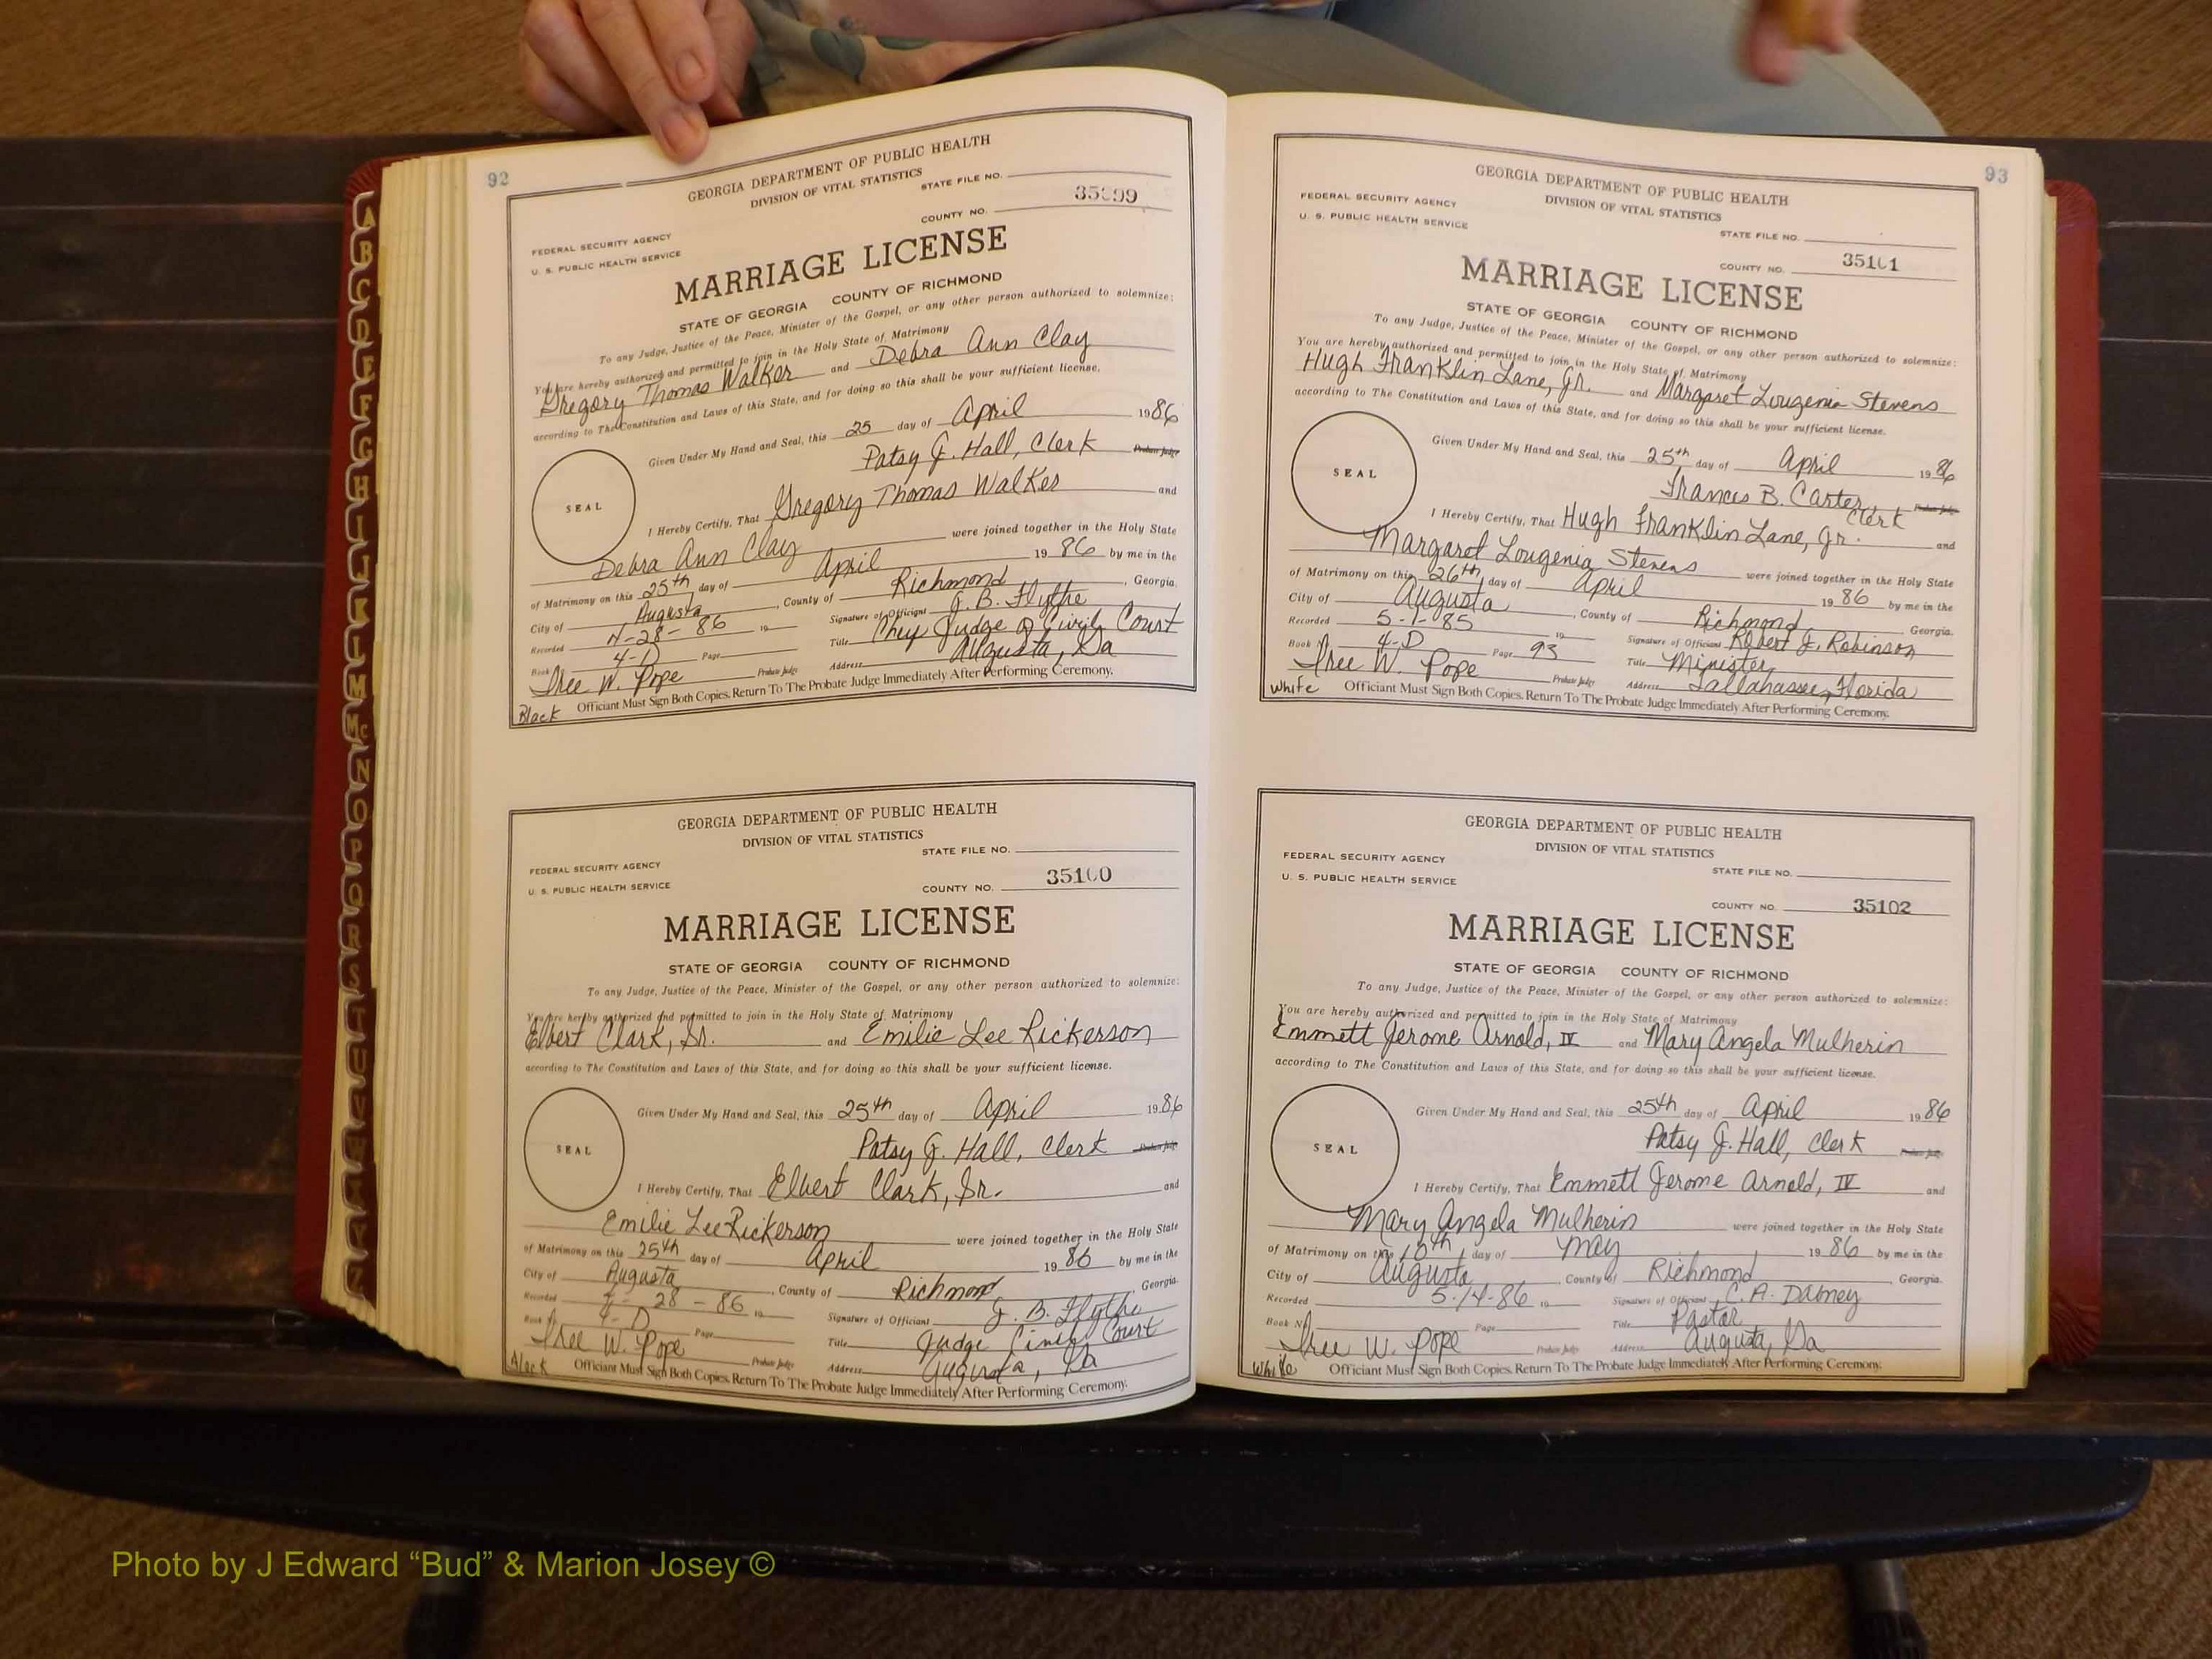 A
B
C
D
E
F
G
H
I
J
K
L
M
Mc
N
O
P
Q
R
S
T
U
V
W
Z
92
GEORGIA DEPARTMENT OF PUBLIC HEALTH
DIVISION OF VITAL STATISTICS
STATE FILE NO.
FEDERAL SECURITY AGENCY
U. S. PUBLIC HEALTH SERVICE
COUNTY NO. 35099
MARRIAGE LICENSE
STATE OF GEORGIA COUNTY OF RICHMOND
To any Judge, Justice of the Peace, Minister of the Gospel, or any other person authorized to solemnize:
You are hereby authorized and permitted to join in the Holy State of Matrimony
Gregory Thomas Walker and Debra Ann Clay
according to The Constitution and Laws of this State, and for doing so this shall be your sufficient license.
Given Under My Hand and Seal, this 25 day of April 1986
Patsy J. Hall, Clerk Probate Judge
SEAL
I Hereby Certify, That Gregory Thomas Walker and
Debra Ann Clay were joined together in the Holy State
of Matrimony on this 25th day of April 19 86 by me in the
City of Augusta, County of Richmond, Georgia.
Recorded 4-28-86 19 Signature of Officiant J. B. Flythe
Book 4-D Page Title Chief Judge of Civil Court
Iree W. Pope Probate Judge Address Augusta, Ga
Black Officiant Must Sign Both Copies. Return To The Probate Judge Immediately After Performing Ceremony.
GEORGIA DEPARTMENT OF PUBLIC HEALTH
DIVISION OF VITAL STATISTICS
STATE FILE NO.
FEDERAL SECURITY AGENCY
U. S. PUBLIC HEALTH SERVICE
COUNTY NO. 35100
MARRIAGE LICENSE
STATE OF GEORGIA COUNTY OF RICHMOND
To any Judge, Justice of the Peace, Minister of the Gospel, or any other person authorized to solemnize:
You are hereby authorized and permitted to join in the Holy State of Matrimony
Elbert Clark, Sr. and Emilie Lee Rickerson
according to The Constitution and Laws of this State, and for doing so this shall be your sufficient license.
Given Under My Hand and Seal, this 25th day of April 1986
Patsy J. Hall, Clerk Probate Judge
SEAL
I Hereby Certify, That Elbert Clark, Sr. and
Emilie Lee Rickerson were joined together in the Holy State
of Matrimony on this 25th day of April 19 86 by me in the
City of Augusta, County of Richmond Georgia.
Recorded 4-28-86 19 Signature of Officiant J. B. Flythe
Book N. 4-D Page Title Judge Civil Court
Iree W. Pope Probate Judge Address Augusta, Ga
Black Officiant Must Sign Both Copies. Return To The Probate Judge Immediately After Performing Ceremony.
93
GEORGIA DEPARTMENT OF PUBLIC HEALTH
DIVISION OF VITAL STATISTICS
FEDERAL SECURITY AGENCY
U. S. PUBLIC HEALTH SERVICE
STATE FILE NO.
COUNTY NO. 35101
MARRIAGE LICENSE
STATE OF GEORGIA COUNTY OF RICHMOND
To any Judge, Justice of the Peace, Minister of the Gospel, or any other person authorized to solemnize:
You are hereby authorized and permitted to join in the Holy State of Matrimony
Hugh Franklin Lane, Jr. and Margaret Lougenia Stevens
according to The Constitution and Laws of this State, and for doing so this shall be your sufficient license.
Given Under My Hand and Seal, this 25th day of April 1986
Frances B. Carter, Clerk Probate Judge
SEAL
I Hereby Certify, That Hugh Franklin Lane, Jr. and
Margaret Lougenia Stevens were joined together in the Holy State
of Matrimony on this 26th day of April 19 86 by me in the
City of Augusta, County of Richmond Georgia.
Recorded 5-1-85 19 Signature of Officiant Robert J. Robinson
Book N. 4-D Page 93 Title Minister
Iree W. Pope Probate Judge Address Tallahassee, Florida
White Officiant Must Sign Both Copies. Return To The Probate Judge Immediately After Performing Ceremony.
GEORGIA DEPARTMENT OF PUBLIC HEALTH
DIVISION OF VITAL STATISTICS
FEDERAL SECURITY AGENCY
U. S. PUBLIC HEALTH SERVICE
STATE FILE NO.
COUNTY NO. 35102
MARRIAGE LICENSE
STATE OF GEORGIA COUNTY OF RICHMOND
To any Judge, Justice of the Peace, Minister of the Gospel, or any other person authorized to solemnize:
You are hereby authorized and permitted to join in the Holy State of Matrimony
Emmett Jerome Arnold, IV and Mary Angela Mulherin
according to The Constitution and Laws of this State, and for doing so this shall be your sufficient license.
Given Under My Hand and Seal, this 25th day of April 1986
Patsy J. Hall, Clerk Probate Judge
SEAL
I Hereby Certify, That Emmett Jerome Arnold, IV and
Mary Angela Mulherin were joined together in the Holy State
of Matrimony on this 10th day of May 19 86 by me in the
City of Augusta, County of Richmond, Georgia.
Recorded 5-14-86 19 Signature of Officiant C. A. Dabney
Book N. Page Title Pastor
Iree W. Pope Probate Judge Address Augusta, Ga
White Officiant Must Sign Both Copies. Return To The Probate Judge Immediately After Performing Ceremony.
Photo by J Edward “Bud” & Marion Josey ©